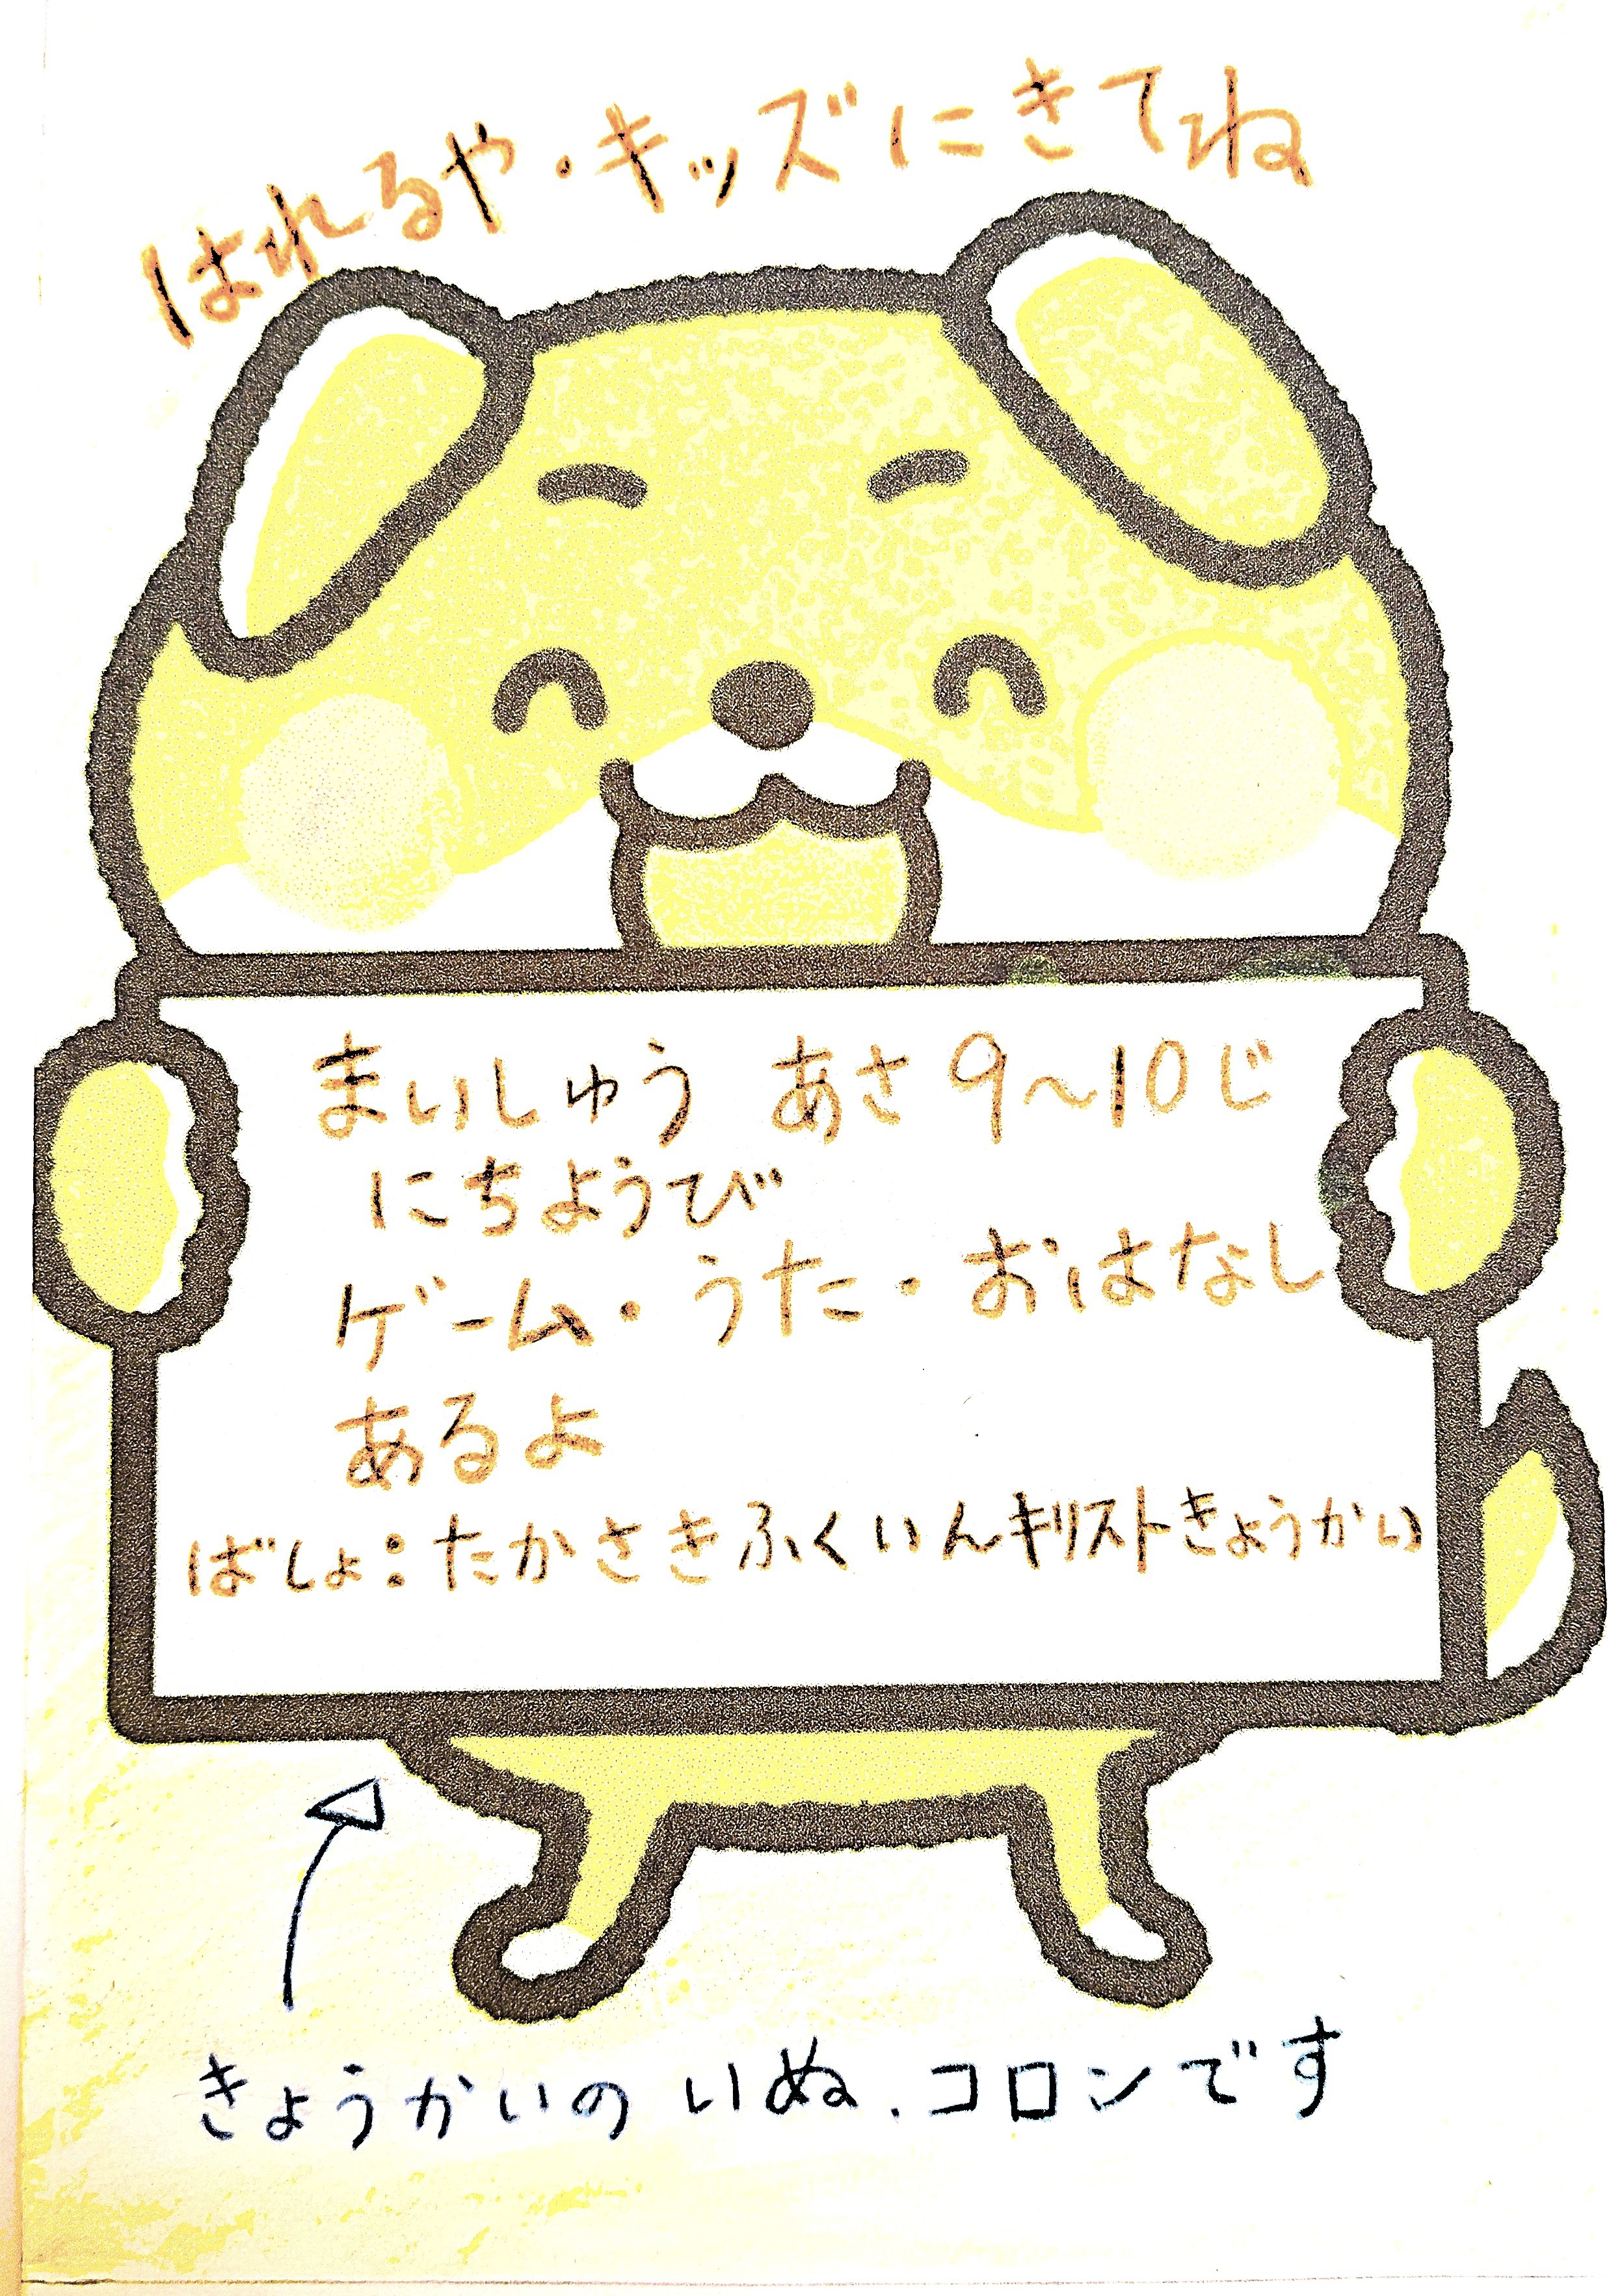 はれるや・キッズにきてね
まいしゅう あさ9~10じ
にちようび
ゲーム・うた・おはなし
あるよ
ばしょ:たかさきふくいんキリストきょうかい
きょうかいの いぬ、コロンです